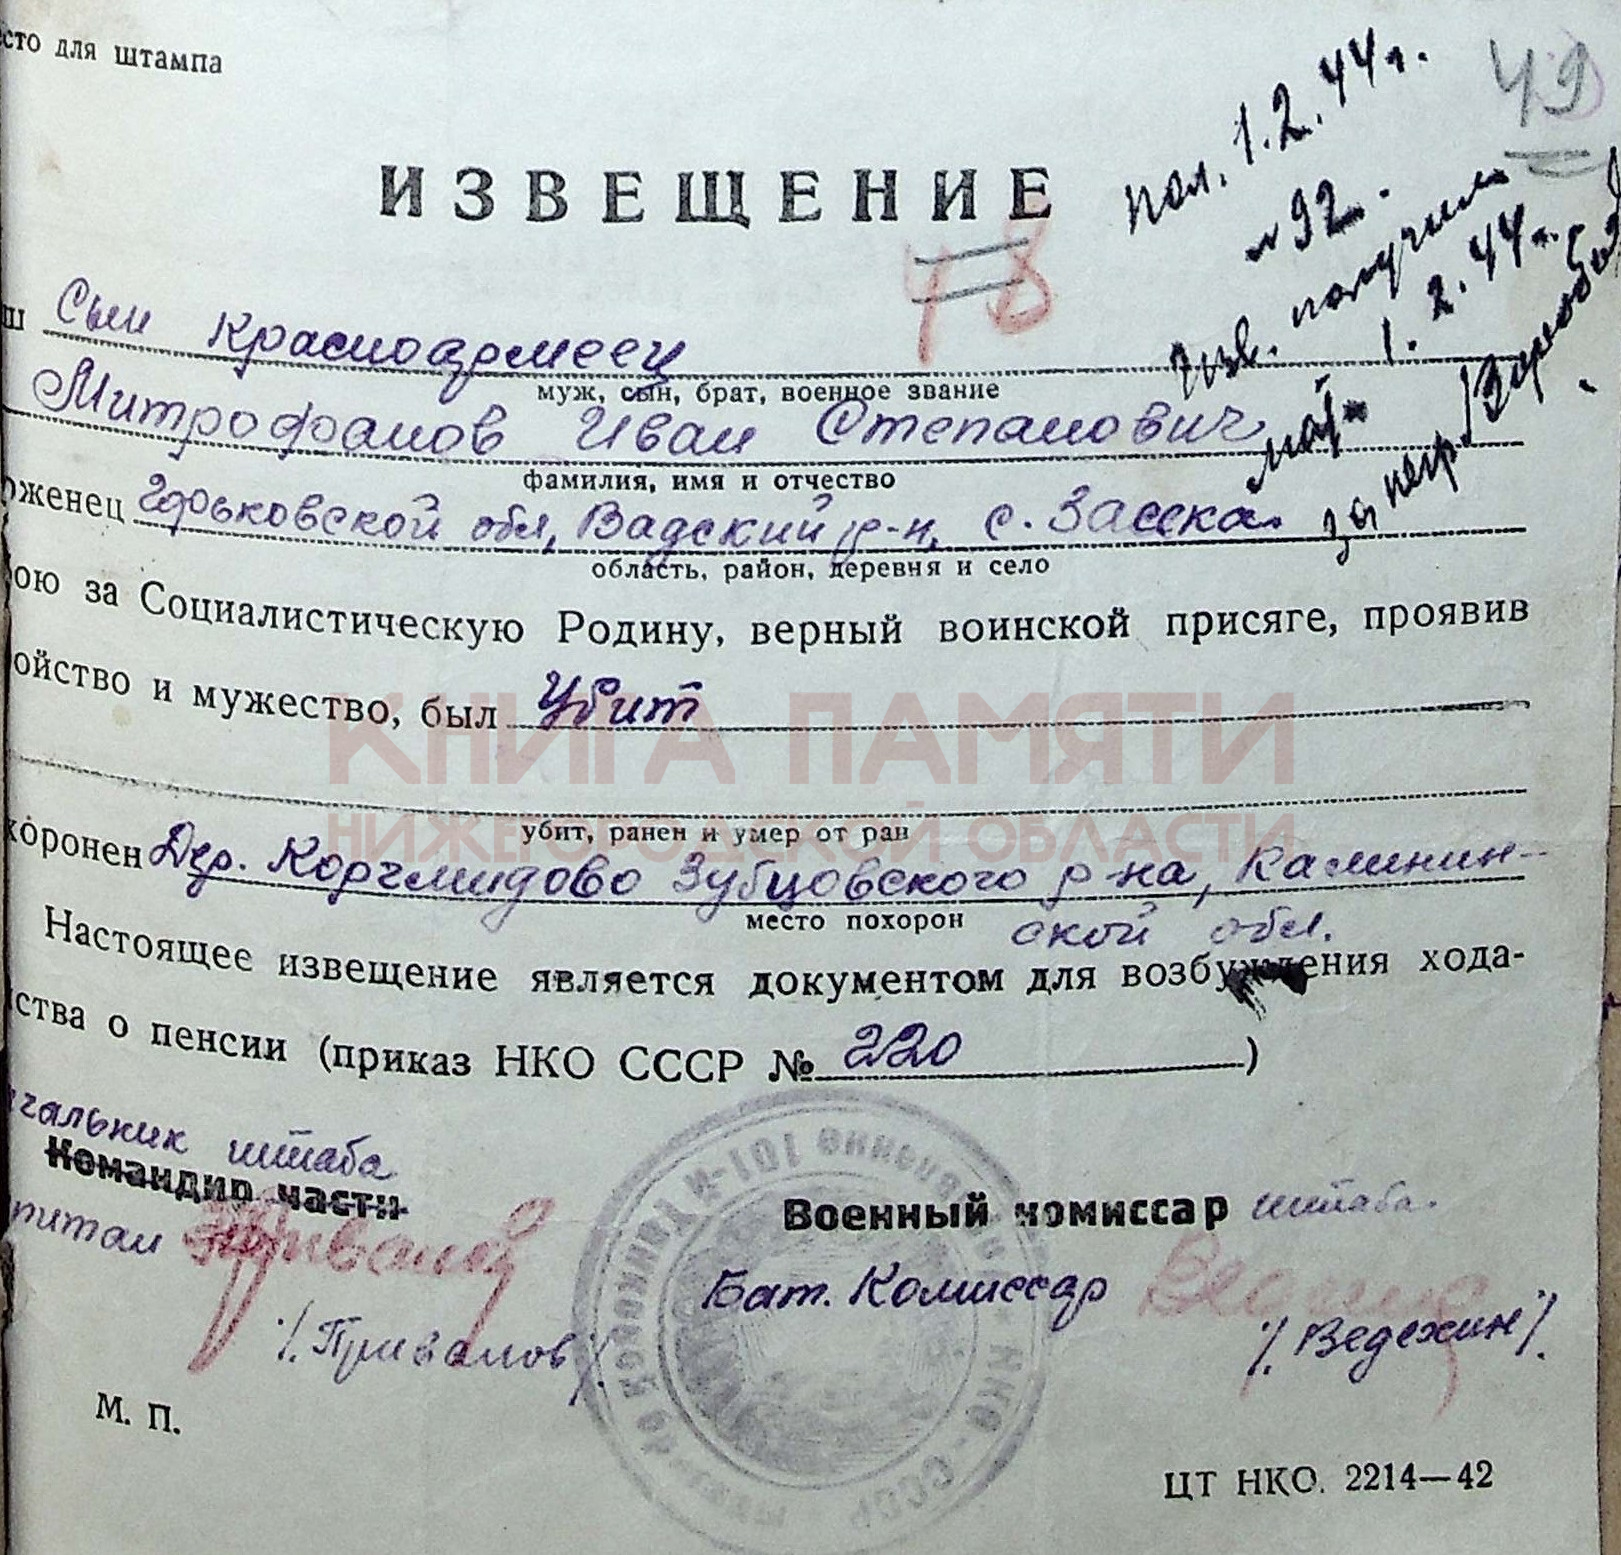 есто для штампа
пол. 1.2.44г.
49
№92.
ИЗВЕЩЕНИЕ
48
Изв. получила
1.2.44г.
ш Сын Красноармеец
муж, сын, брат, военное звание
Митрофанов Иван Степанович
мать
за негр
фамилия, имя и отчество
оженец Горьковской обл, Вадский р-н, с. Засека
область, район, деревня и село
ою за Социалистическую Родину, верный воинской присяге, проявив
ойство и мужество, был Убит
КНИГА ПАМЯТИ
НИЖЕГОРОДСКОЙ ОБЛАСТИ
убит, ранен и умер от ран
хоронен Дер. Коргмидово Зубцовского р-на, Калинин-
место похорон ской обл.
Настоящее извещение является документом для возбуждения хода-
ства о пенсии (приказ НКО СССР № 220)
чальник штаба
Командир части
питан
/.Привалов/.
Военный комиссар штаба.
Бат. Комиссар
/. Ведехин/.
101-й танковой
НКО - СССР
М. П.
ЦТ НКО. 2214—42